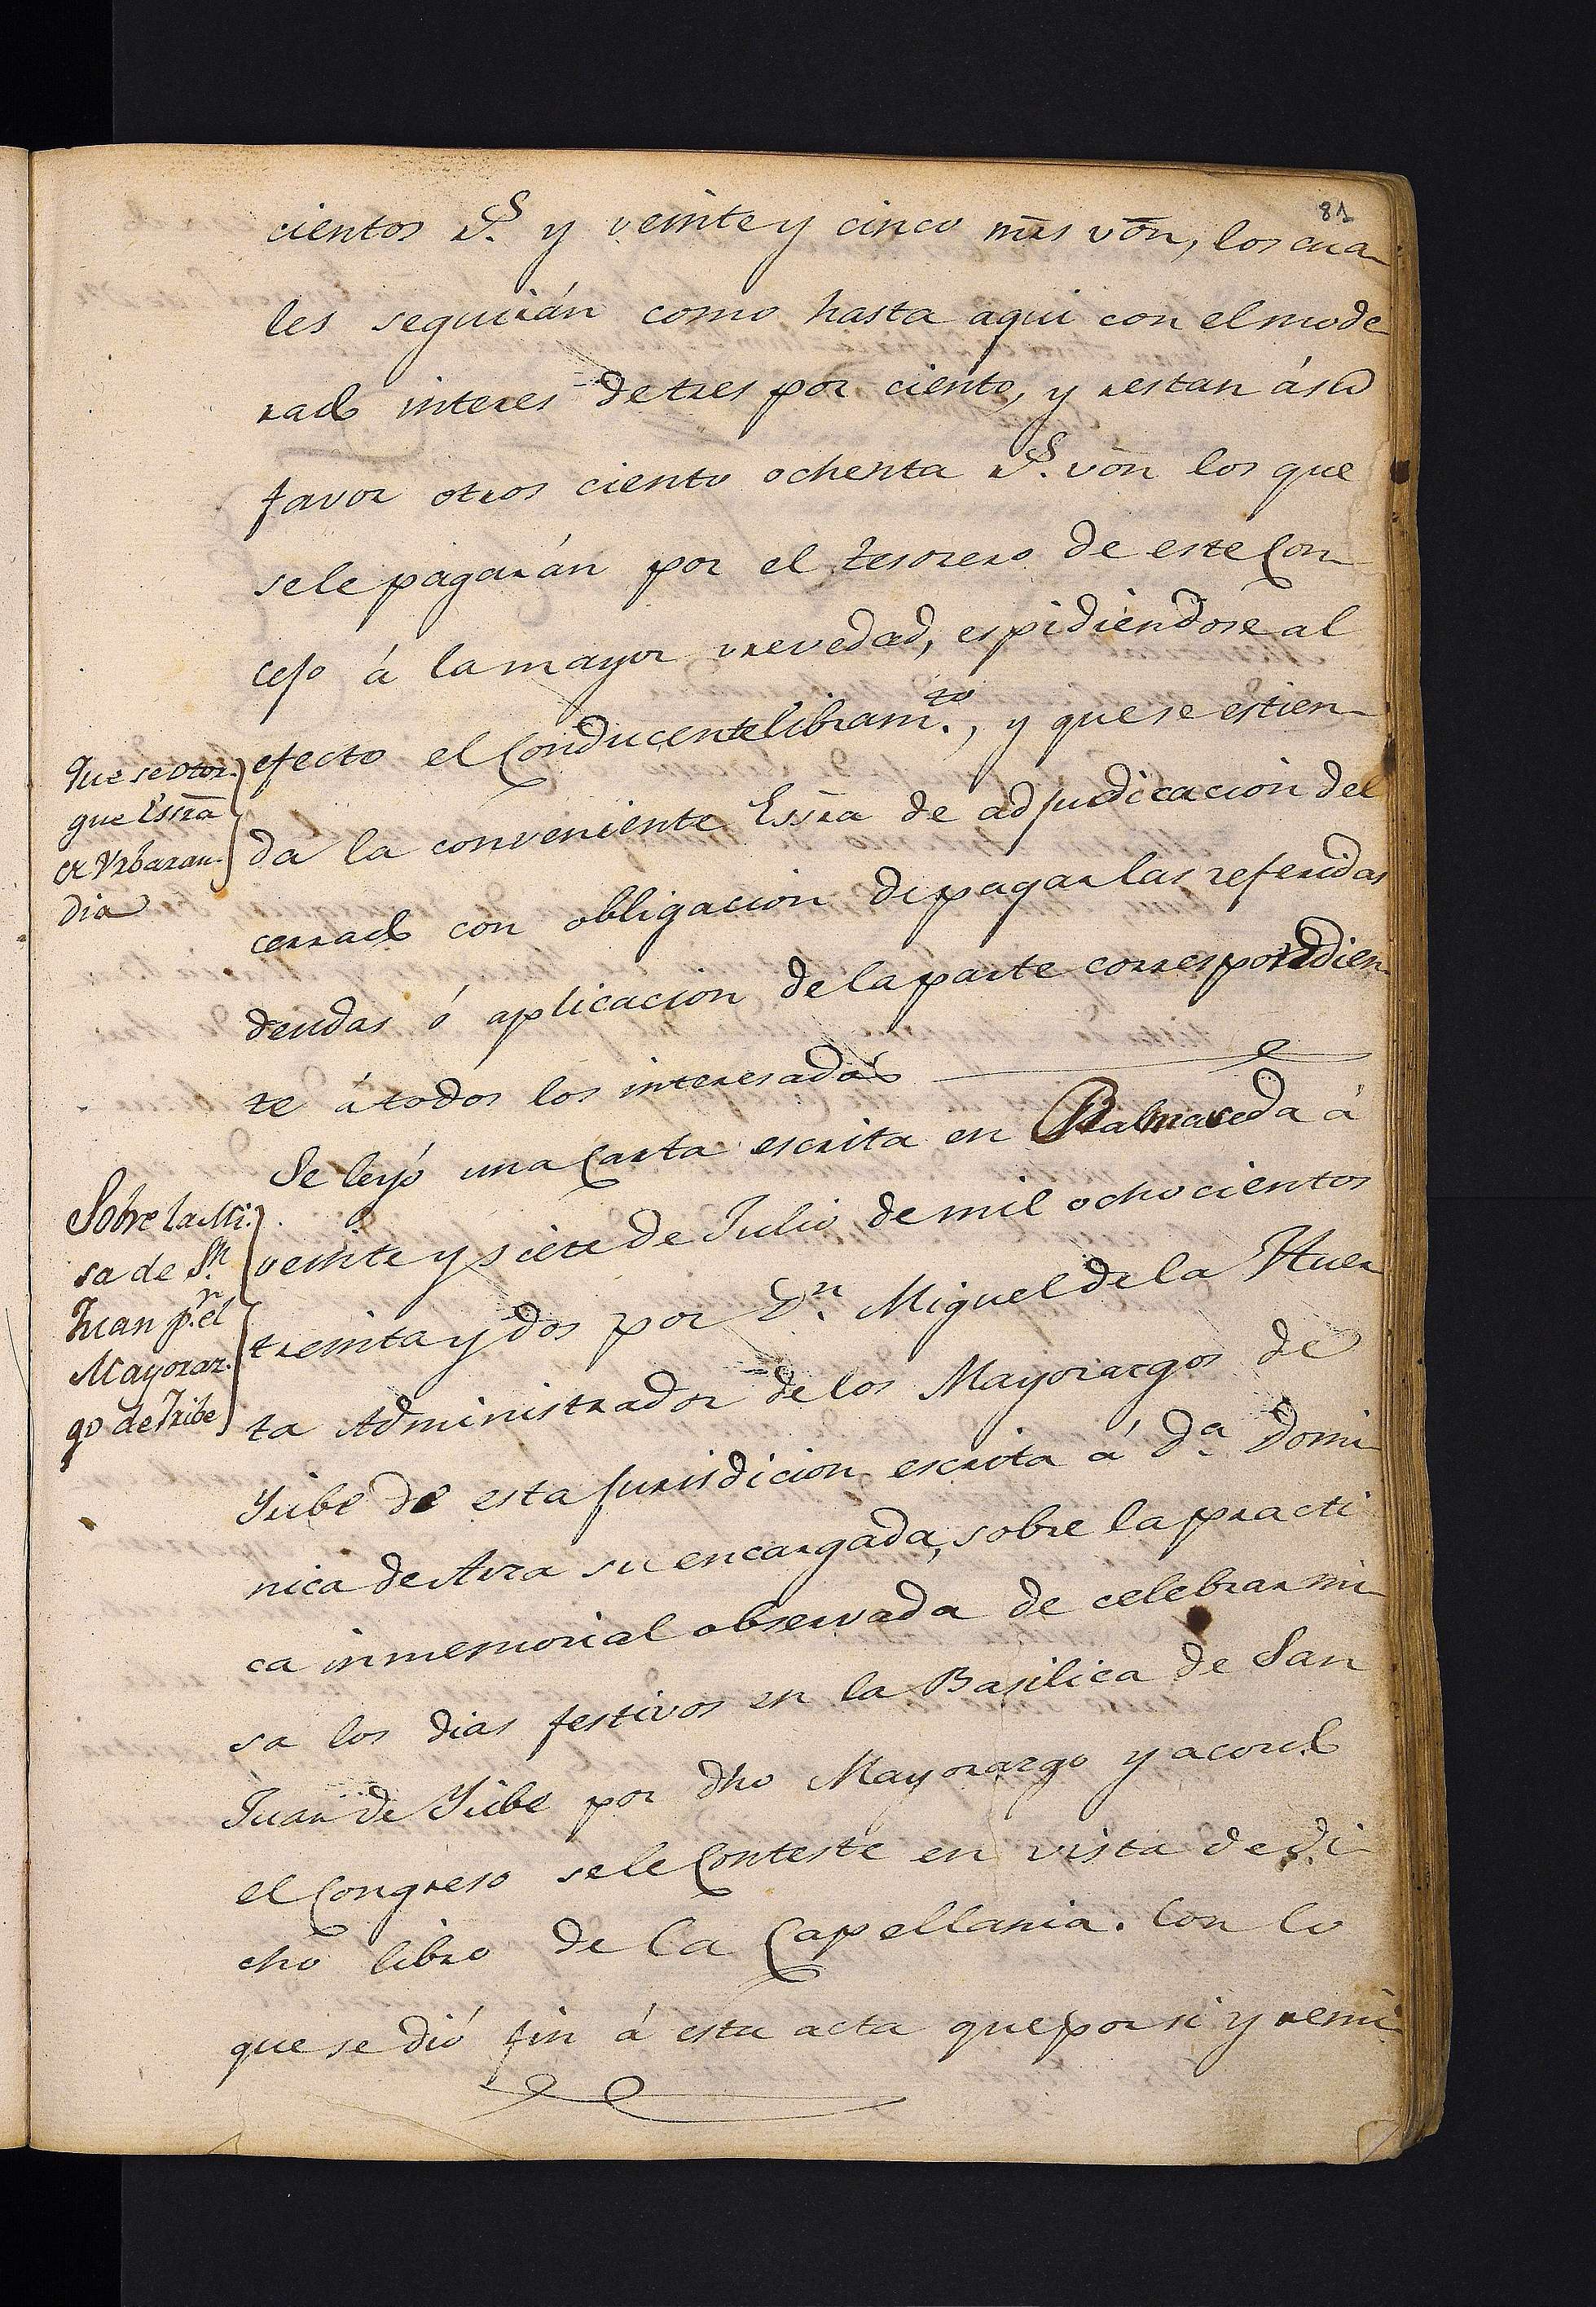 81
cientos r.s y veinte y cinco mrs von, los cua-
les seguirán como hasta aqui con el mode-
rado interes de tres por ciento, y restan á su
favor otros ciento ochenta r.s von los que
se le pagarán por el tesorero de este Con-
cejo á la mayor vrevedad, espidiendose al
efecto el Conducente libram.to, y que se estien-
da la conveniente Essra de adjudicacion del
cerrado con obligacion de pagar las referidas
deudas ó aplicacion de la parte correspondien-
te á todos los interesados
Se leyó una Carta escrita en Balmaseda á
veinte y siete de Julio de mil ochocientos
treinta y dos por D.n Miguel de la Huer-
ta Administrador de los Mayorazgos de
Yribe de esta Jurisdicion escrita á D.a Domi-
nica de Arza su encargada, sobre la practi-
ca inmemorial observada de celebrar mi-
sa los dias festivos en la Basilica de San
Juan de Yribe por dho Mayorazgo y acordó
el Congreso se le Conteste en vista de di-
cho libro de la Capellania. Con lo
que se dió fin á esta acta que por si y remi-
Que se otor-
gue Essra
á Urbaran-
dia
Sobre la Mi-
sa de S.n
Juan p.r el
Mayoraz-
go de Iribe